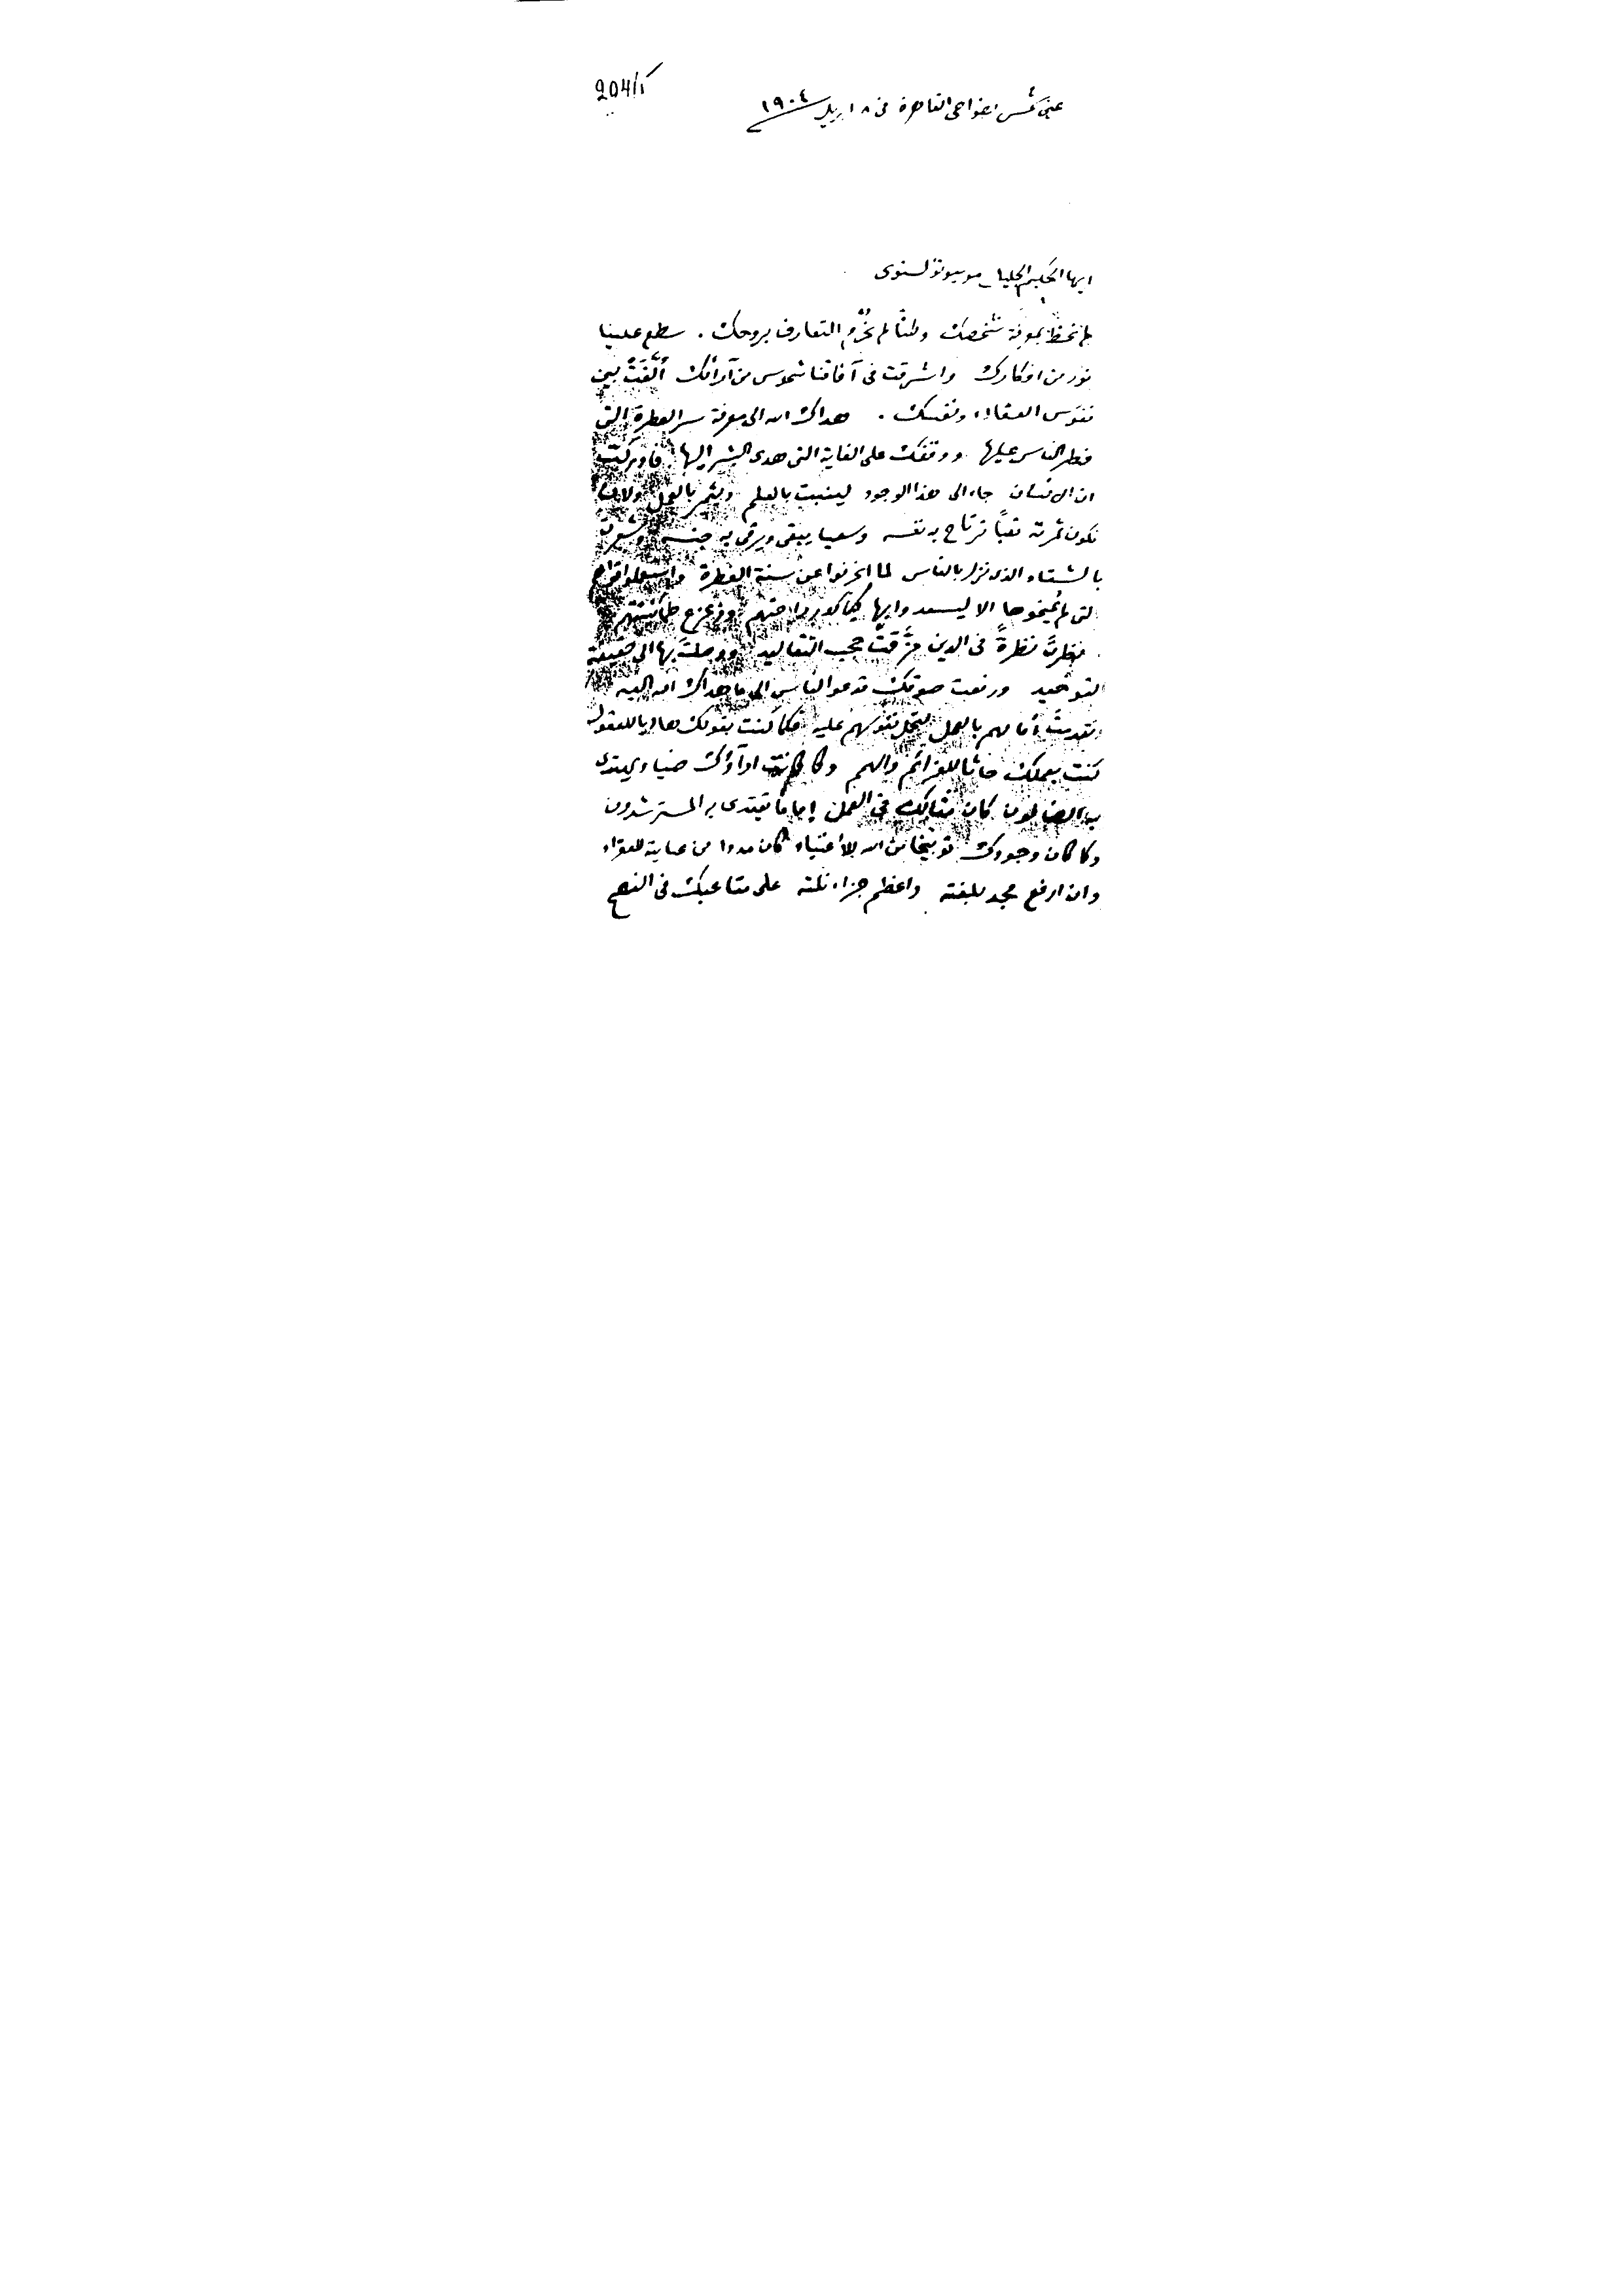 204/1
عين شمس بضواحي القاهرة في ٨ ابريل ١٩٠٤
ايها الحكيم الجليل موسيو تولستوى
لم نحظ بمعرفة شخصك ولكنا لم نُحْرَم التعارف بروحك . سطع علينا
نور من افكارك واشرقت في آفاقنا شموس من آرائك أَلَّفَتْ بين
نفوس العقلاء ونفسك . هداك الله الى معرفة سر الفطرة التى
فطر الناس عليها ووقفك على الغاية التى هدى البشر اليها فادركت
ان الانسان جاء الى هذا الوجود لينبت بالعلم ويثمر بالعمل ولان
تكون ثمرته تعبًا ترتاح به نفسه وسعيا يبقى ويرقى به جنسه وشعرت
بالشقاء الذى نزل بالناس لما انحرفوا عن سنة الفطرة واستعملوا قواهم
التى لم يُمنحوها الا ليسعدوا بها فيما كدر راحتهم وزعزع طمأنينتهم
نظرتَ نظرةً فى الدين مزَّقتْ حجب التقاليد ووصلتَ بها الى حقيقة
التوحيد ورفعت صوتك تدعو الناس الى ما هداك الله اليه
وتقدمتَ أمامهم بالعمل لتحمل نفوسهم عليه فكما كنت بقولك هاديا للعقول
كنت بعملك حاثا للعزائم والهمم وكما كانت آراؤك ضياء يهتدى
بها الضالون كان مثالك في العمل إماما يقتدى به المسترشدون
وكما كان وجودك توبيخا من الله للأغنياء كان مددا من عنايته للفقراء
وان ارفع مجد بلغته واعظم جزاء نلته على متاعبك فى النصح